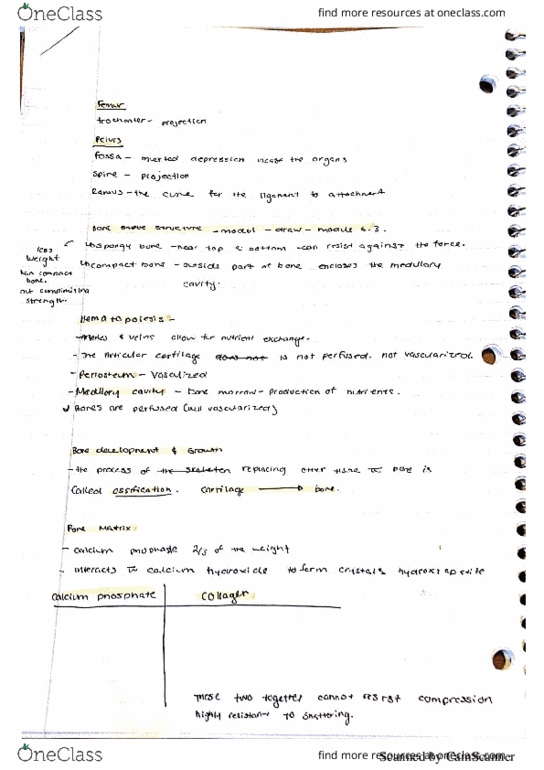 OneClass
find more resources at oneclass.com
Femur
trochanter - projection
Pelvis
fossa - depression the organs
Spine - projection
Ramus - the curve for the ligament to attachment
Bone structure - model - draw - module 6.3.
less weight than compact bone. out strength.
spongy bone - near top & bottom - can resist against the force.
compact bone - outside part of bone encloses the medullary
cavity.
Hematopoiesis -
- & veins allow for nutrient exchange.
- The Articular cartilage does not is not perfused. not vascularized.
- Periosteum - Vasculized
- Medullary cavity - bone marrow - production of nutrients.
Bones are perfused (well vascularized)
Bone development & Growth
- the process of the skeleton replacing other to bone is
called ossification. cartilage → bone.
Bone Matrix:
- calcium phosphate 2/3 of the weight
- interacts calcium hydroxide to form crystals hydroxyapatite
calcium phosphate
Collagen
These two together cannot resist compression
highly resistant to shattering.
OneClass
find more resources at oneclass.com
Scanned by CamScanner